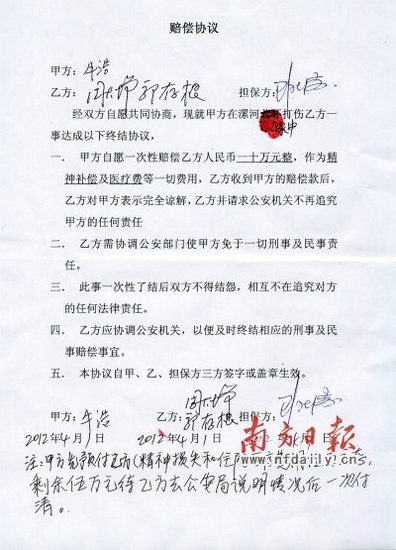 赔偿协议
甲方：牛浩
乙方：周增 郭存根 担保方：
经双方自愿共同协商，现就甲方在漯河打伤乙方一
事达成以下终结协议，
一． 甲方自愿一次性赔偿乙方人民币一十万元整，作为精
神补偿及医疗费等一切费用，乙方收到甲方的赔偿款后，
乙方对甲方表示完全谅解，乙方并请求公安机关不再追究
甲方的任何责任
二． 乙方需协调公安部门使甲方免于一切刑事及民事责
任。
三． 此事一次性了结后双方不得结怨，相互不在追究对方
的任何法律责任。
四． 乙方应协调公安机关，以便及时终结相应的刑事及民
事赔偿事宜。
五． 本协议自甲、乙、担保方三方签字或盖章生效。
甲方：牛浩 乙方：周增 郭存根 担保方：
2012年4月1日 2012年4月1日
南方日报
nfdaily.cn
注：甲方先预付乙方（精神损失和住
剩余伍万元待乙方去公安局说明情况后一次付
清。